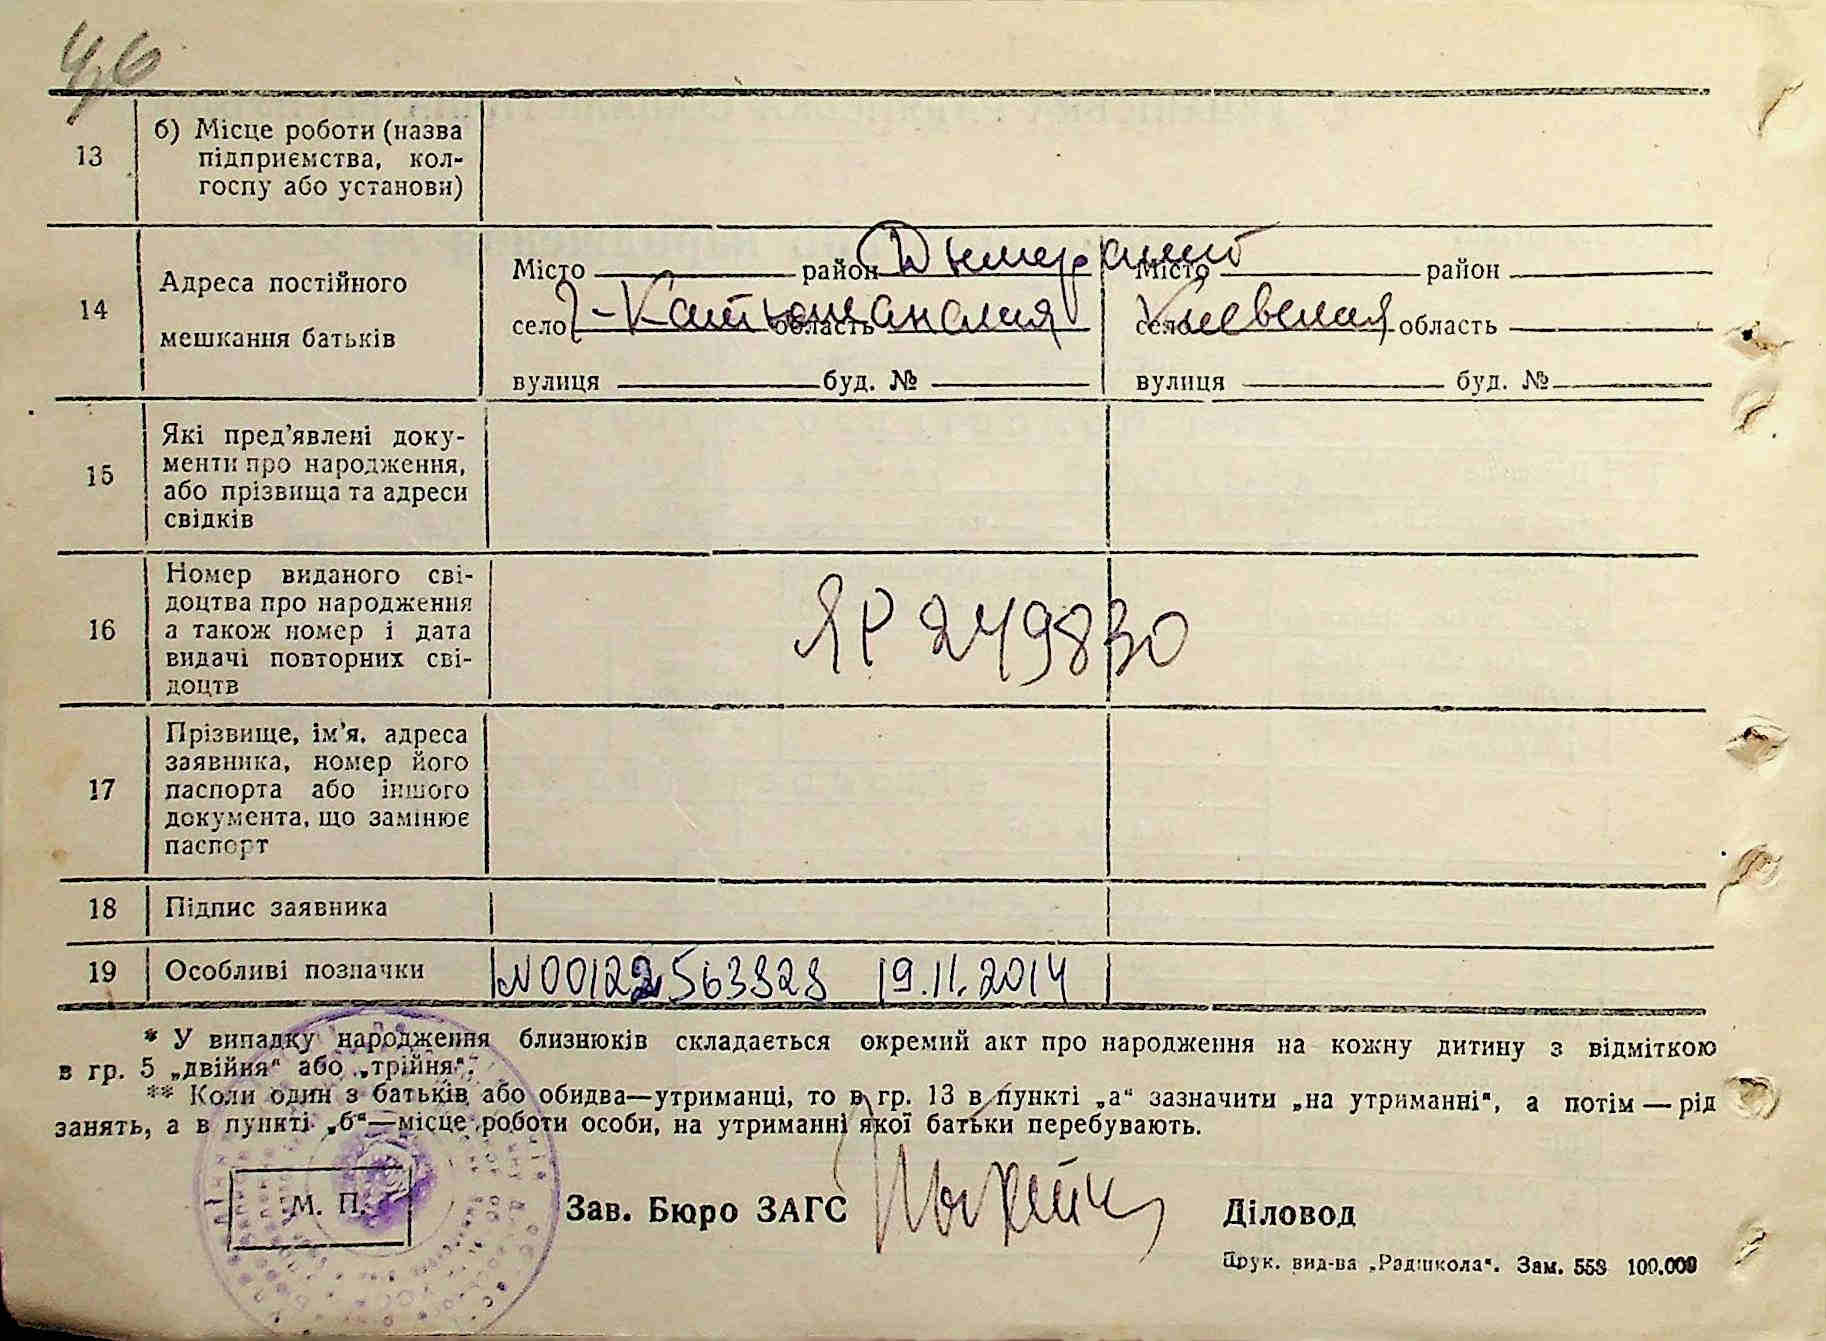 4,6
13 б) Місце роботи (назва
підприємства, кол-
госпу або установи)
14 Адреса постійного
мешкання батьків
Місто район Дымерский Місто район
село область село Киевская область
вулиця буд. № вулиця буд. №
15 Які пред'явлені доку-
менти про народження,
або прізвища та адреси
свідків
16 Номер виданого сві-
доцтва про народження
а також номер і дата
видачі повторних сві-
доцтв
ЯР 249830
17 Прізвище, ім'я, адреса
заявника, номер його
паспорта або іншого
документа, що замінює
паспорт
18 Підпис заявника
19 Особливі позначки N00122563828 19.11.2014
* У випадку народження близнюків складається окремий акт про народження на кожну дитину з відміткою
в гр. 5 „двійня“ або „трійня“.
** Коли один з батьків або обидва—утриманці, то в гр. 13 в пункті „а“ зазначити „на утриманні“, а потім — рід
занять, а в пункті „б“—місце роботи особи, на утриманні якої батьки перебувають.
М. П. Зав. Бюро ЗАГС Діловод
Друк. вид-ва „Радшкола“. Зам. 553 100.000